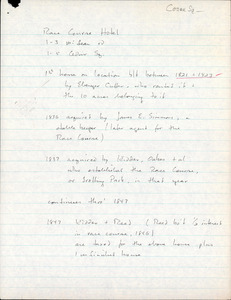 Race Course Hotel
1-3
1st house on location blt between 1821 + 1823
by Ebenezer Cutler, who rented it +
the 10 acres belonging to it
1836 acquired by James E. Simmons, a
stable keeper (later agent for the
Race Course)
1837 acquired by et al
who established the Race Course,
or Trotting Park, in that year
continuous thro' 1847
1847 + Reed. (Reed bt interest
in race course, 1846)
are taxed for the above house, plus
1 unfinished house